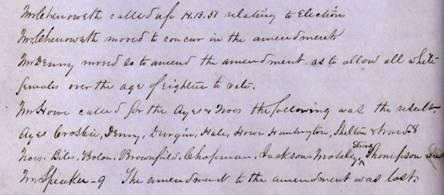 Mr Chenoweth called up H.B. 51 relating to Election
Mr Chenoweth moved to concur in the amendment
Mr Denny moved so to amend the amendment as to allow all white
females over the age of eighteen to vote.
Mr Howe called for the Ayes & Noes the following was the result
Ayes Crosbie, Denny, Durgin, Haley Howe Huntington, Shelton & Ward 8
Noes: Biles, Bolon, Brownfield, Chapman, Jackson Moseley Thompson
Mr Speaker - 9 The amendment to the amendment was lost.